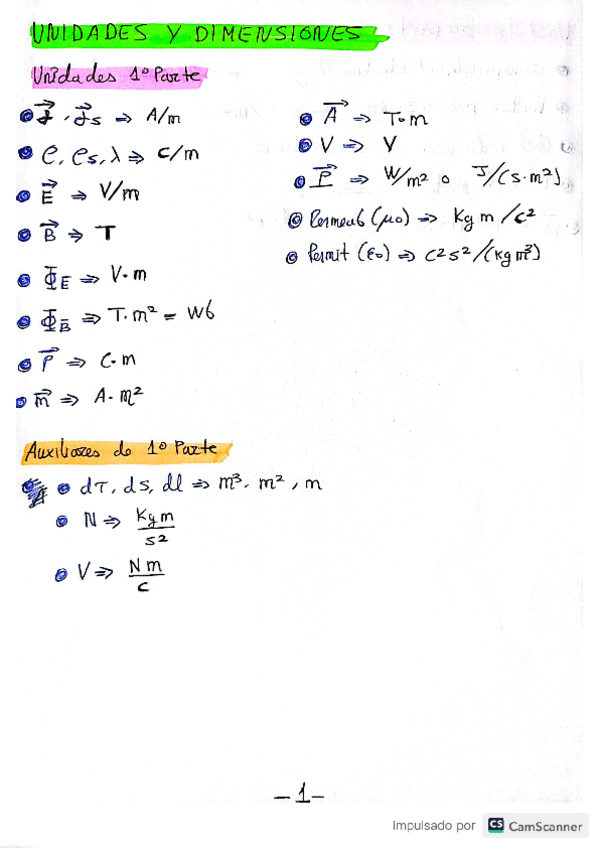 UNIDADES Y DIMENSIONES
Unidades 1º Parte
J⃗, J⃗s ⇒ A/m
ρ, ρs, λ ⇒ C/m
E⃗ ⇒ V/m
B⃗ ⇒ T
Φ_E ⇒ V·m
Φ_B ⇒ T·m² = Wb
P⃗ ⇒ C·m
m⃗ ⇒ A·m²
A⃗ ⇒ T·m
V ⇒ V
P⃗ ⇒ W/m² o J/(s·m²)
Permeab (μ0) ⇒ Kg m/C²
Permit (ε0) ⇒ C²s²/(Kg m³)
Auxiliares de 1º Parte
dτ, ds, dl ⇒ m³, m², m
N ⇒ Kg m / s²
V ⇒ N m / C
-1-
Impulsado por CS CamScanner